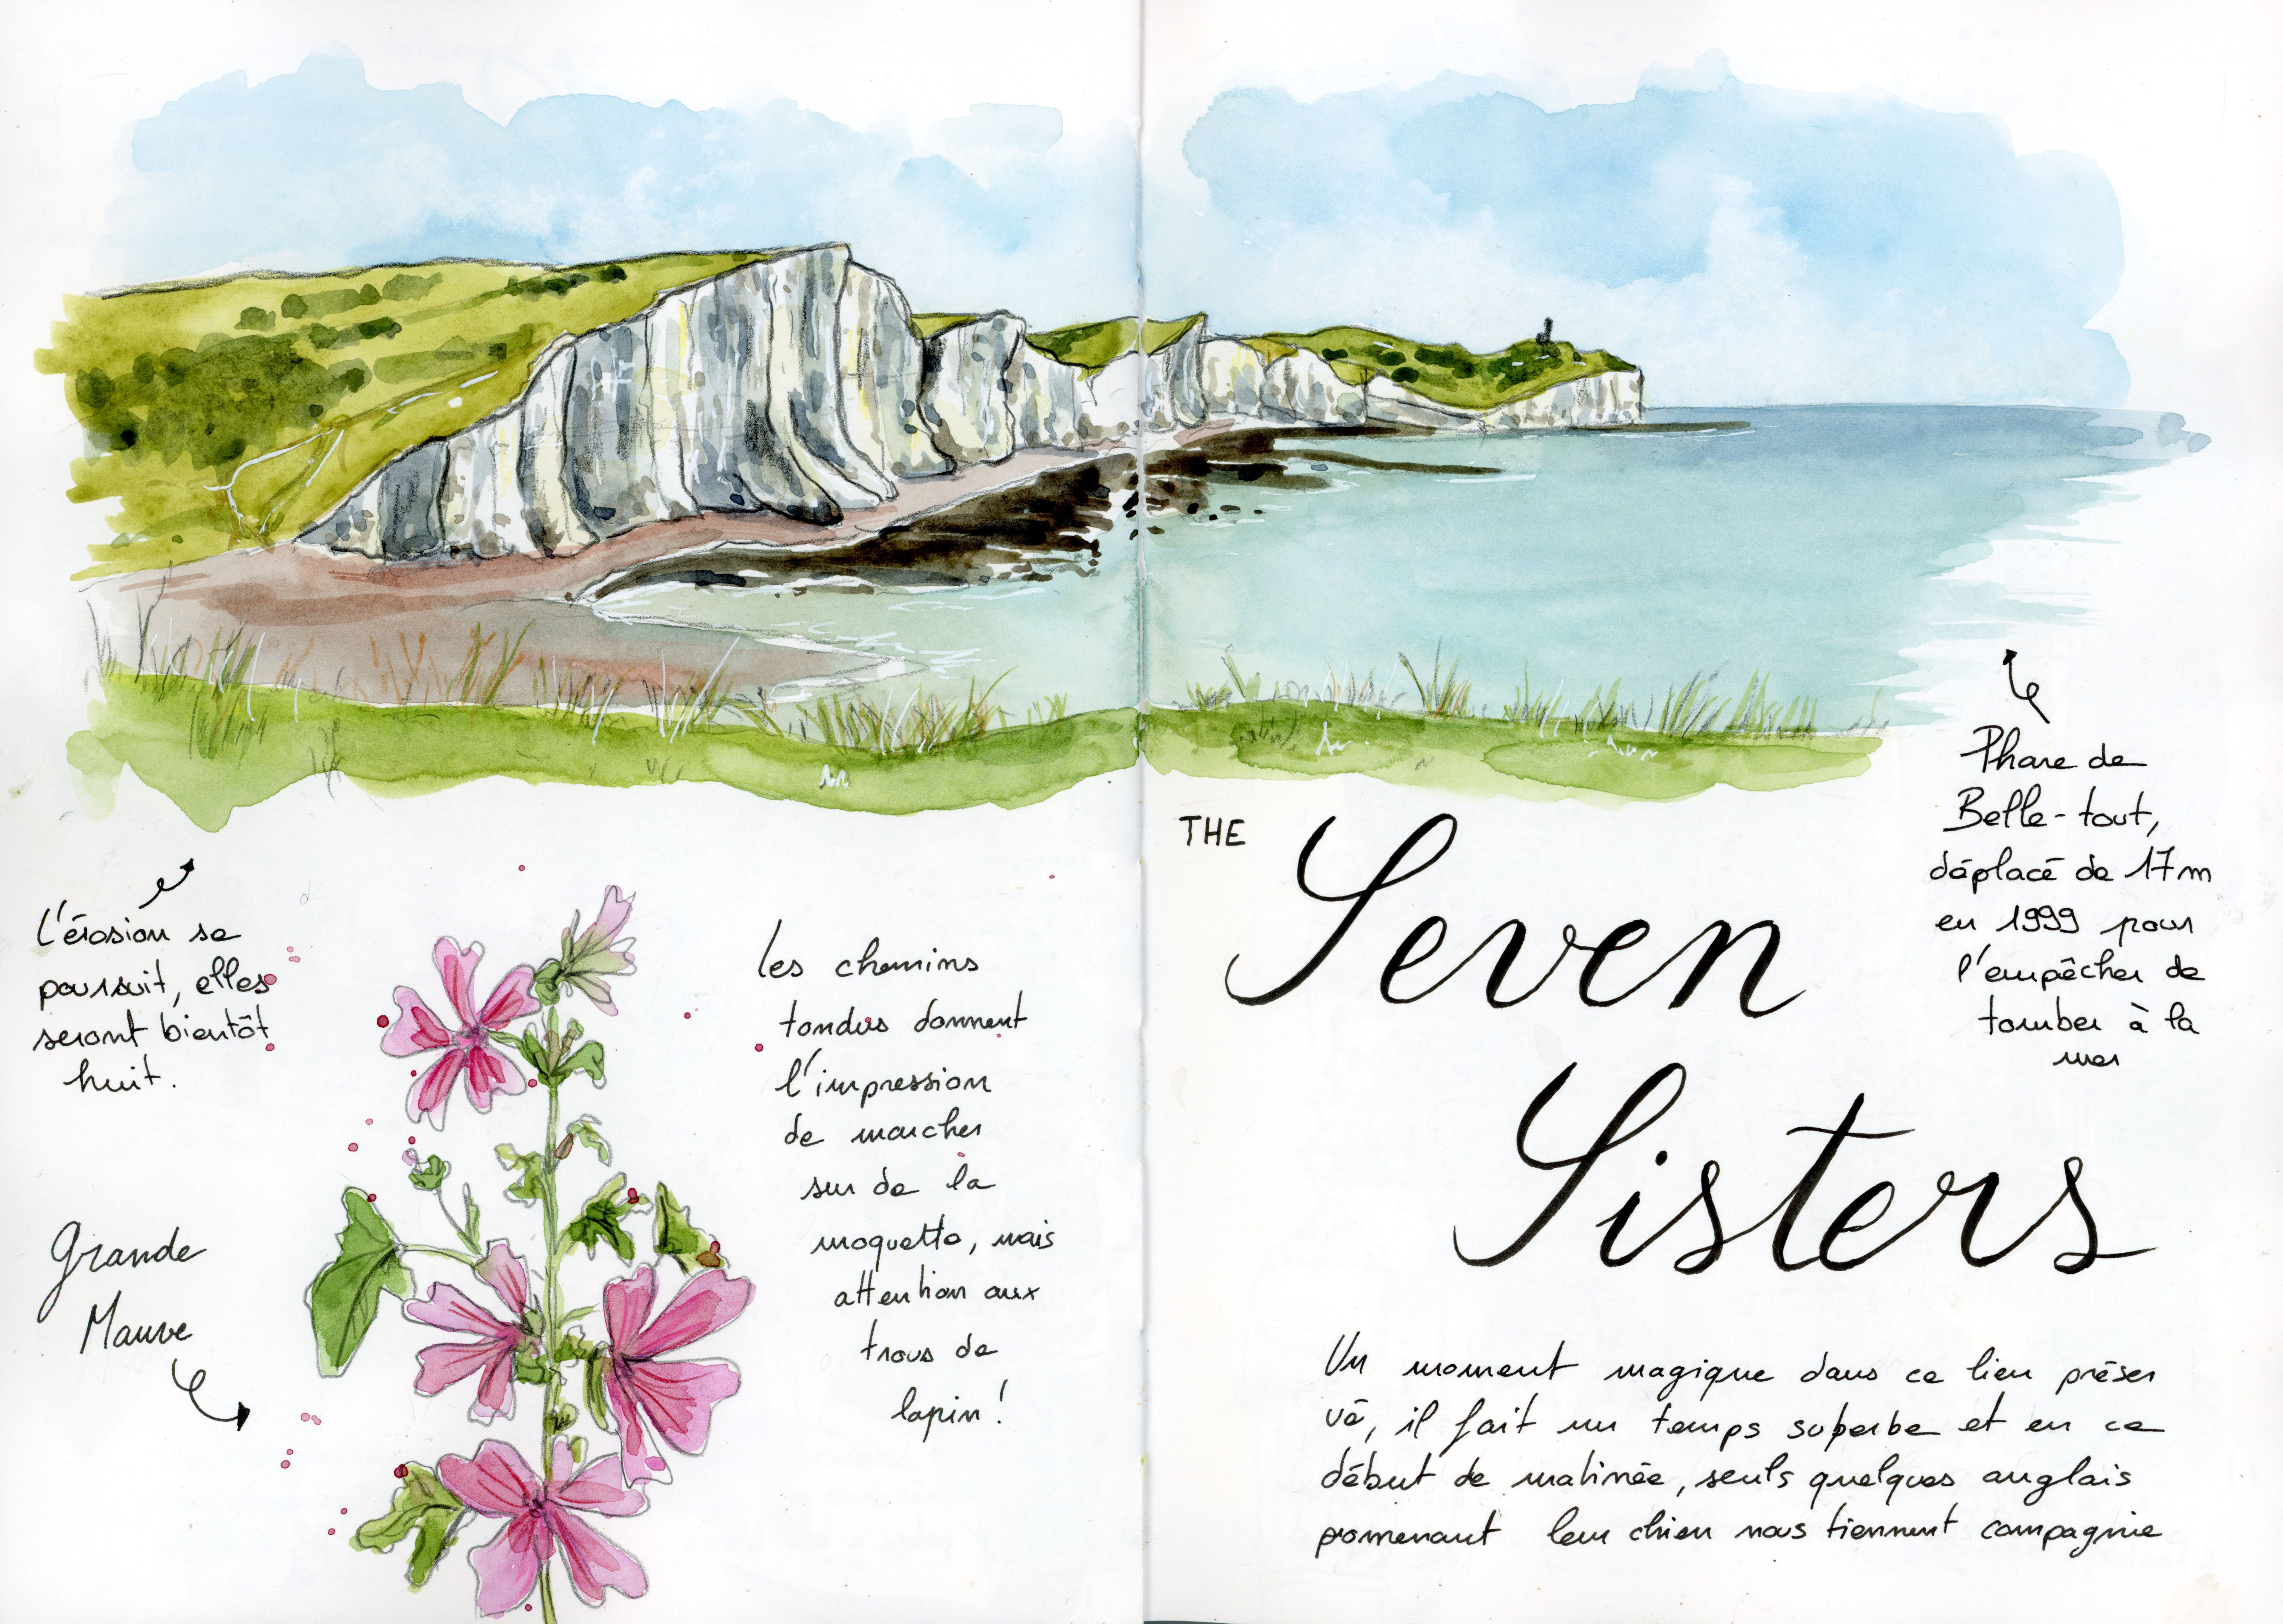 L'érosion se
poursuit, elles
seront bientôt
huit.
Grande
Mauve
les chemins
tondus donnent
l'impression
de marcher
sur de la
moquette, mais
attention aux
trous de
lapin !
THE Seven
Sisters
Phare de
Belle-tout,
déplacé de 17m
en 1999 pour
l'empêcher de
tomber à la
mer
Un moment magique dans ce lieu préser
vé, il fait un temps superbe et en ce
début de matinée, seuls quelques anglais
promenant leur chien nous tiennent compagnie